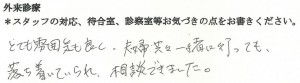 外来診療
*スタッフの対応、待合室、診察室等お気づきの点をお書きください。
とても雰囲気も良く、夫婦共々一緒に行っても、
落ち着いていられ、相談できました。